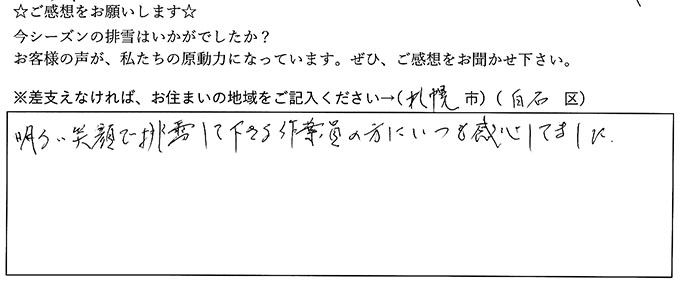 ☆ご感想をお願いします☆
今シーズンの排雪はいかがでしたか？
お客様の声が、私たちの原動力になっています。ぜひ、ご感想をお聞かせ下さい。
※差支えなければ、お住まいの地域をご記入ください→（札幌 市）（白石 区）
明るい笑顔で排雪して下さる作業員の方にいつも感心してました.